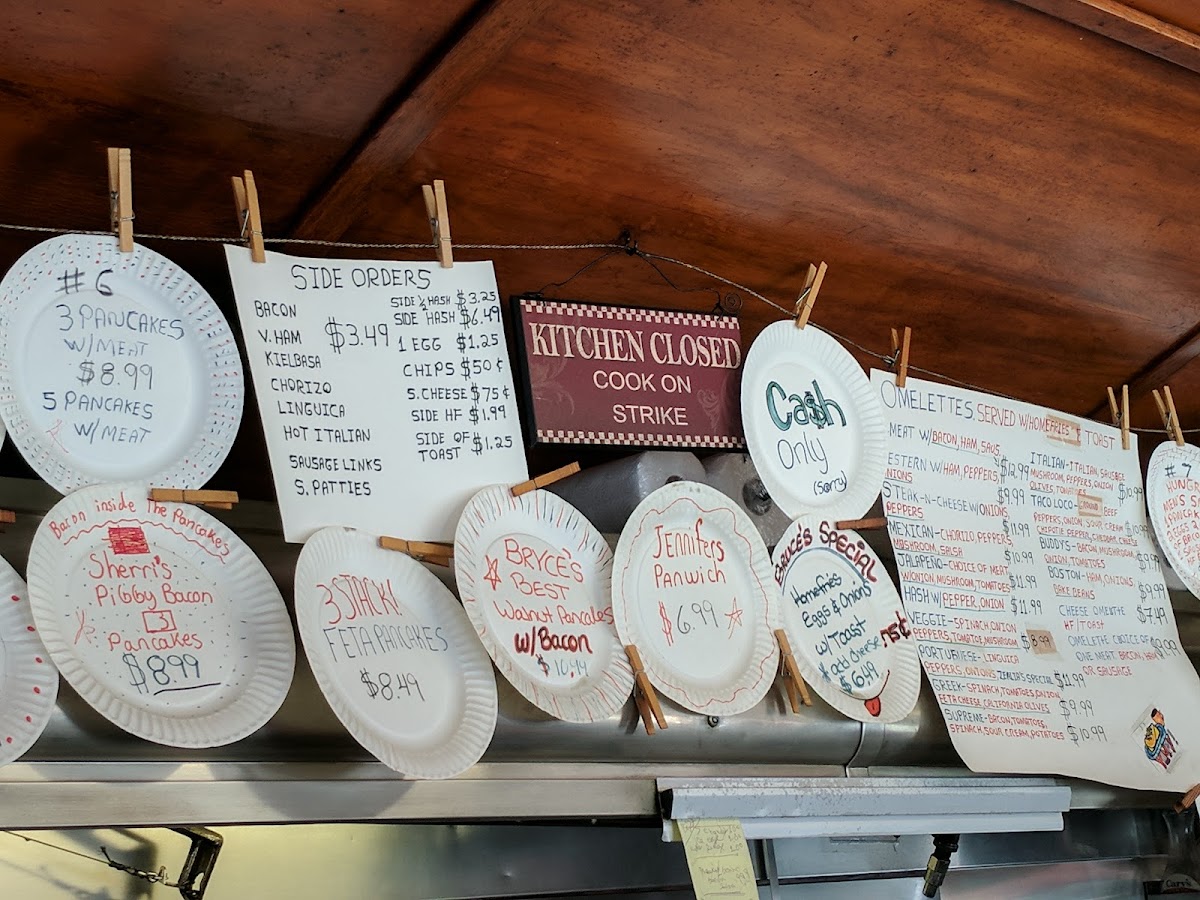 #6
3 PANCAKES
W/MEAT
$8.99
5 PANCAKES
W/ MEAT
SIDE ORDERS
BACON
V. HAM
KIELBASA
CHORIZO
LINGUICA
HOT ITALIAN
SAUSAGE LINKS
S. PATTIES
$3.49
SIDE ½ HASH $3.25
SIDE HASH $6.49
1 EGG $1.25
CHIPS $50¢
S.CHEESE $75¢
SIDE HF $1.99
SIDE OF TOAST $1.25
KITCHEN CLOSED
COOK ON
STRIKE
Cash
Only
(Sorry)
OMELETTES SERVED W/HOMEFRIES & TOAST
MEAT W/BACON, HAM, SAUS.
ESTERN W/HAM, PEPPERS,
NIONS
$12.99
$9.99
STEAK-N-CHEESE W/ONIONS
PEPPERS
$11.99
MEXICAN-CHORIZO, PEPPERS
MUSHROOM, SALSA
$10.99
JALAPEÑO-CHOICE OF MEAT,
W/ONION, MUSHROOM, TOMATOES
$11.99
HASH W/PEPPER, ONION
$11.99
VEGGIE-SPINACH, ONION
PEPPERS, TOMATOE, MUSHROOM
$8.99
PORTUGUESE-LINGUICA
PEPPERS, ONIONS
ZENLIA'S SPECIAL $11.99
GREEK-SPINACH, TOMATOES, ONION,
FETA CHEESE, CALIFORNIA OLIVES
$9.99
SUPREME-BACON, TOMATOES,
SPINACH, SOUR CREAM, POTATOES
$10.99
ITALIAN-ITALIAN, SAUSAGE
MUSHROOM, PEPPERS, ONION
OLIVES, TOMATOES
TACO LOCO-GROUND BEEF
PEPPERS, ONION, SOUR CREAM
CHIPOTLE PEPPER, CHEDDAR CHEESE
BUDDYS-BACON, MUSHROOM,
ONION, TOMATOES
BOSTON-HAM, ONIONS,
BAKE BEANS
$9.99
CHEESE OMELETTE
HF/TOAST
$7.49
OMELETTE CHOICE OF
ONE MEAT BACON, HAM
OR SAUSAGE
#7
Bacon inside The Pancakes
Sherri's
Piggy Bacon
3
Pancakes
$8.99
3 STACK!
FETA PANCAKES
$8.49
BRYCE'S
BEST
Walnut Pancakes
W/Bacon
$10.49
Jennifers
Panwich
$6.99
BRUCE'S SPECIAL
Homefries
Eggs & Onions
W/Toast
* add cheese 75¢
$6.49